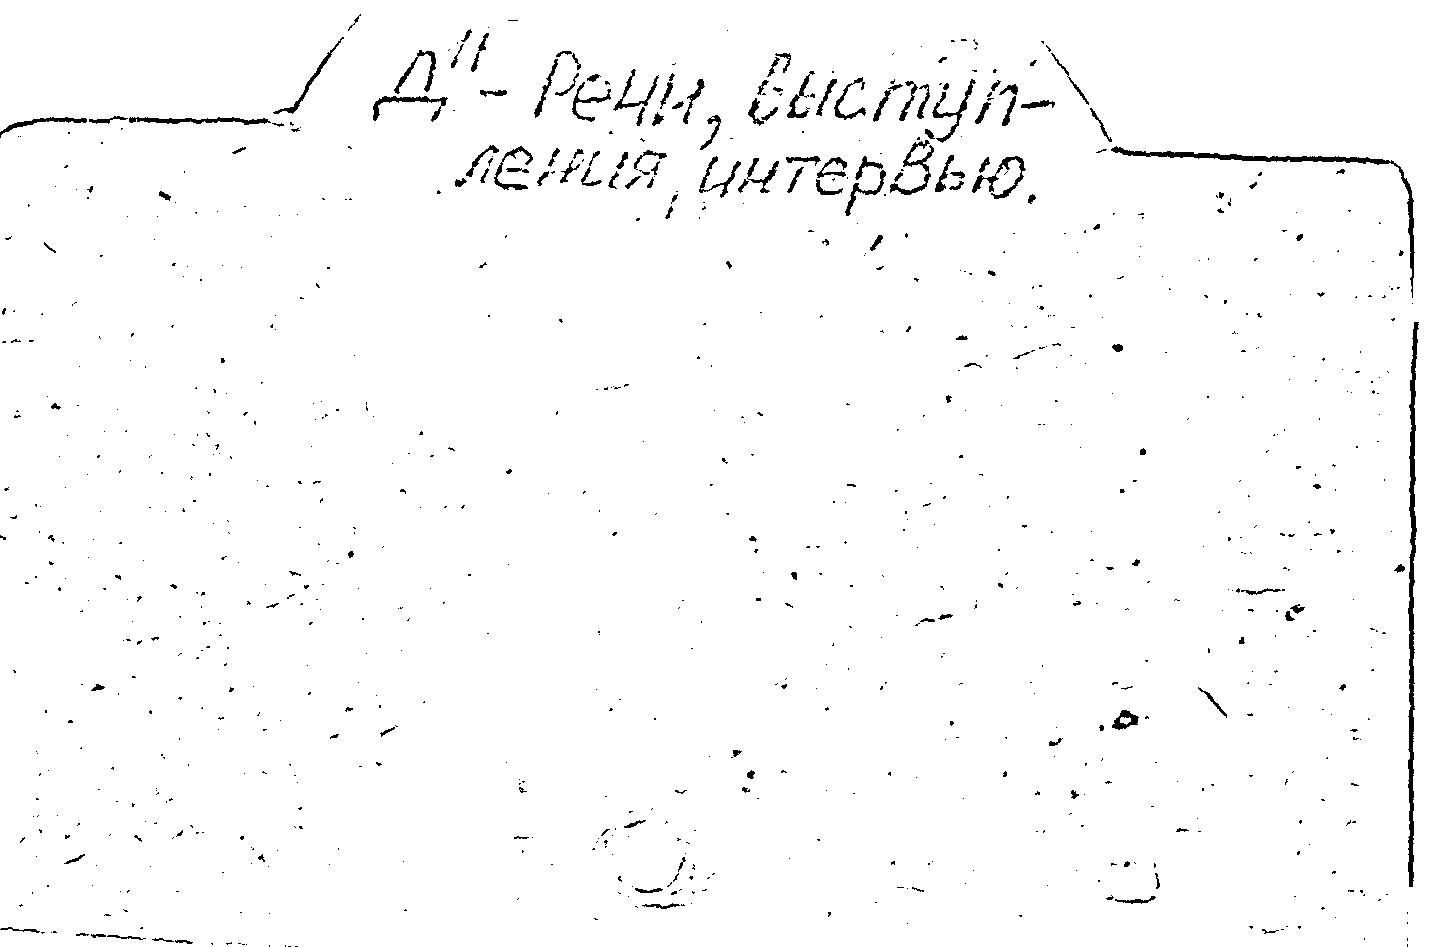 Д" - Речи, выступ-
ления, интервью.